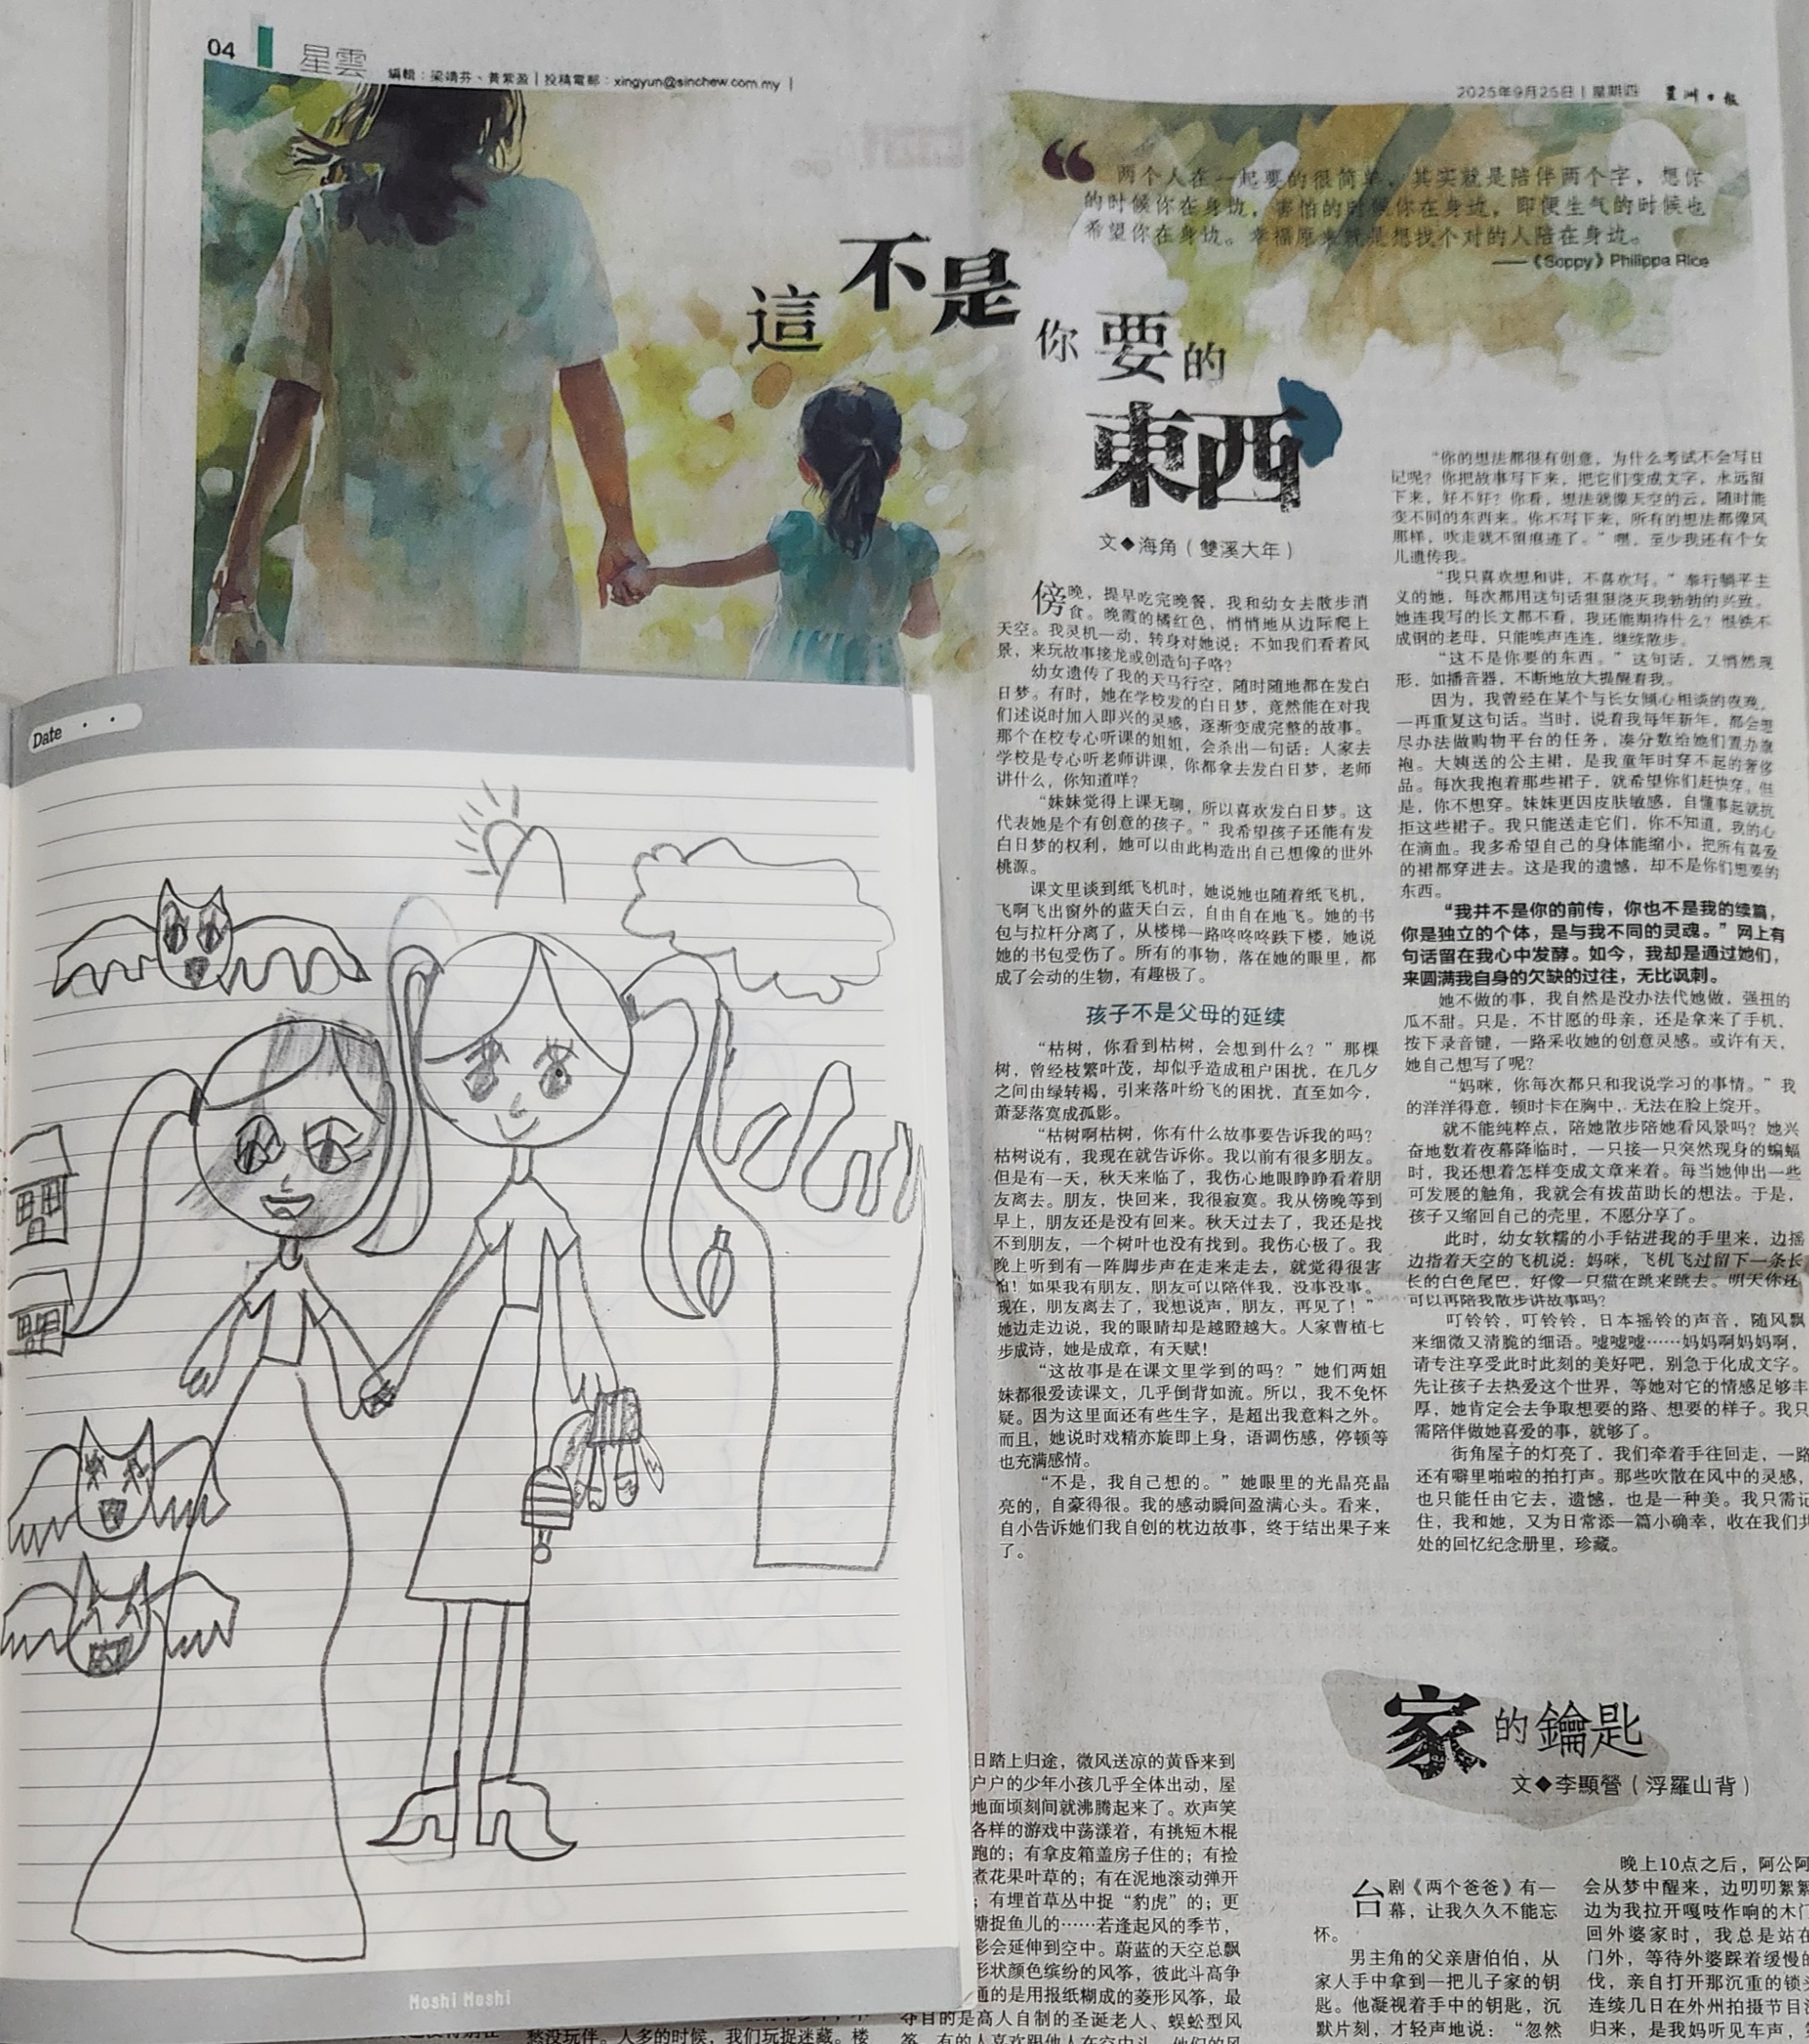 04
星雲
編輯：梁靖芬、黃紫盈 | 投稿電郵：xingyun@sinchew.com.my |
2025年9月25日 | 星期四 星洲日报
两个人在一起要的很简单，其实就是陪伴两个字，想你
的时候你在身边，害怕的时候你在身边，即便生气的时候也
希望你在身边。幸福原来就是想找个对的人陪在身边。
——《Soppy》Philippa Rice
這不是
你要的
東西
文◆海角（雙溪大年）
傍晚，提早吃完晚餐，我和幼女去散步消
食。晚霞的橘红色，悄悄地从边际爬上
天空。我灵机一动，转身对她说：不如我们看着风
景，来玩故事接龙或创造句子咯？
幼女遗传了我的天马行空，随时随地都在发白
日梦。有时，她在学校发的白日梦，竟然能在对我
们述说时加入即兴的灵感，逐渐变成完整的故事。
那个在校专心听课的姐姐，会杀出一句话：人家去
学校是专心听老师讲课，你都拿去发白日梦，老师
讲什么，你知道咩？
“妹妹觉得上课无聊，所以喜欢发白日梦。这
代表她是个有创意的孩子。”我希望孩子还能有发
白日梦的权利，她可以由此构造出自己想像的世外
桃源。
课文里谈到纸飞机时，她说她也随着纸飞机，
飞啊飞出窗外的蓝天白云，自由自在地飞。她的书
包与拉杆分离了，从楼梯一路咚咚咚跌下楼，她说
她的书包受伤了。所有的事物，落在她的眼里，都
成了会动的生物，有趣极了。
孩子不是父母的延续
“枯树，你看到枯树，会想到什么？”那棵
树，曾经枝繁叶茂，却似乎造成租户困扰，在几夕
之间由绿转褐，引来落叶纷飞的困扰，直至如今，
萧瑟落寞成孤影。
“枯树啊枯树，你有什么故事要告诉我的吗？
枯树说有，我现在就告诉你。我以前有很多朋友。
但是有一天，秋天来临了，我伤心地眼睁睁看着朋
友离去。朋友，快回来，我很寂寞。我从傍晚等到
早上，朋友还是没有回来。秋天过去了，我还是找
不到朋友，一个树叶也没有找到。我伤心极了。我
晚上听到有一阵脚步声在走来走去，就觉得很害
怕！如果我有朋友，朋友可以陪伴我，没事没事。
现在，朋友离去了，我想说声，朋友，再见了！”
她边走边说，我的眼睛却是越瞪越大。人家曹植七
步成诗，她是成章，有天赋！
“这故事是在课文里学到的吗？”她们两姐
妹都很爱读课文，几乎倒背如流。所以，我不免怀
疑。因为这里面还有些生字，是超出我意料之外。
而且，她说时戏精亦旋即上身，语调伤感，停顿等
也充满感情。
“不是，我自己想的。”她眼里的光晶亮晶
亮的，自豪得很。我的感动瞬间盈满心头。看来，
自小告诉她们我自创的枕边故事，终于结出果子来
了。
“你的想法都很有创意，为什么考试不会写日
记呢？你把故事写下来，把它们变成文字，永远留
下来，好不好？你看，想法就像天空的云，随时能
变不同的东西来。你不写下来，所有的想法都像风
那样，吹走就不留痕迹了。”嘿，至少我还有个女
儿遗传我。
“我只喜欢想和讲，不喜欢写。”奉行躺平主
义的她，每次都用这句话狠狠浇灭我勃勃的兴致。
她连我写的长文都不看，我还能期待什么？恨铁不
成钢的老母，只能唉声连连，继续散步。
“这不是你要的东西。”这句话，又悄然现
形，如播音器，不断地放大提醒着我。
因为，我曾经在某个与长女倾心相谈的夜晚，
一再重复这句话。当时，说着我每年新年，都会想
尽办法做购物平台的任务，凑分数给她们置办旗
袍。大姨送的公主裙，是我童年时穿不起的奢侈
品。每次我抱着那些裙子，就希望你们赶快穿。但
是，你不想穿。妹妹更因皮肤敏感，自懂事起就抗
拒这些裙子。我只能送走它们，你不知道，我的心
在滴血。我多希望自己的身体能缩小，把所有喜爱
的裙都穿进去。这是我的遗憾，却不是你们想要的
东西。
“我并不是你的前传，你也不是我的续篇，
你是独立的个体，是与我不同的灵魂。”网上有
句话留在我心中发酵。如今，我却是通过她们，
来圆满我自身的欠缺的过往，无比讽刺。
她不做的事，我自然是没办法代她做，强扭的
瓜不甜。只是，不甘愿的母亲，还是拿来了手机，
按下录音键，一路采收她的创意灵感。或许有天，
她自己想写了呢？
“妈咪，你每次都只和我说学习的事情。”我
的洋洋得意，顿时卡在胸中，无法在脸上绽开。
就不能纯粹点，陪她散步陪她看风景吗？她兴
奋地数着夜幕降临时，一只接一只突然现身的蝙蝠
时，我还想着怎样变成文章来着。每当她伸出一些
可发展的触角，我就会有拔苗助长的想法。于是，
孩子又缩回自己的壳里，不愿分享了。
此时，幼女软糯的小手钻进我的手里来，边摇
边指着天空的飞机说：妈咪，飞机飞过留下一条长
长的白色尾巴，好像一只猫在跳来跳去。明天你还
可以再陪我散步讲故事吗？
叮铃铃，叮铃铃，日本摇铃的声音，随风飘
来细微又清脆的细语。嘘嘘嘘……妈妈啊妈妈啊，
请专注享受此时此刻的美好吧，别急于化成文字。
先让孩子去热爱这个世界，等她对它的情感足够丰
厚，她肯定会去争取想要的路、想要的样子。我只
需陪伴做她喜爱的事，就够了。
街角屋子的灯亮了，我们牵着手往回走，一路
还有噼里啪啦的拍打声。那些吹散在风中的灵感，
也只能任由它去，遗憾，也是一种美。我只需记
住，我和她，又为日常添一篇小确幸，收在我们共
处的回忆纪念册里，珍藏。
Date
Moshi Moshi
日踏上归途，微风送凉的黄昏来到
户户的少年小孩几乎全体出动，屋
地面顷刻间就沸腾起来了。欢声笑
各样的游戏中荡漾着，有挑短木棍
跑的；有拿皮箱盖房子住的；有捡
煮花果叶草的；有在泥地滚动弹开
；有埋首草丛中捉“豹虎”的；更
捉鱼儿的……若逢起风的季节，
会延伸到空中。蔚蓝的天空总飘
形状颜色缤纷的风筝，彼此斗高争
通的是用报纸糊成的菱形风筝，最
夺目的是高人自制的圣诞老人、蜈蚣型风
愁没玩伴。人多的时候，我们玩捉迷藏。楼
家的鑰匙
文◆李顯營（浮羅山背）
台剧《两个爸爸》有一
幕，让我久久不能忘
怀。
男主角的父亲唐伯伯，从
家人手中拿到一把儿子家的钥
匙。他凝视着手中的钥匙，沉
默片刻，才轻声地说：“忽然
晚上10点之后，阿公阿
会从梦中醒来，边叨叨絮絮
边为我拉开嘎吱作响的木门
回外婆家时，我总是站在
门外，等待外婆踩着缓慢的
伐，亲自打开那沉重的锁头
连续几日在外州拍摄节目
归来，是我妈听见车声，